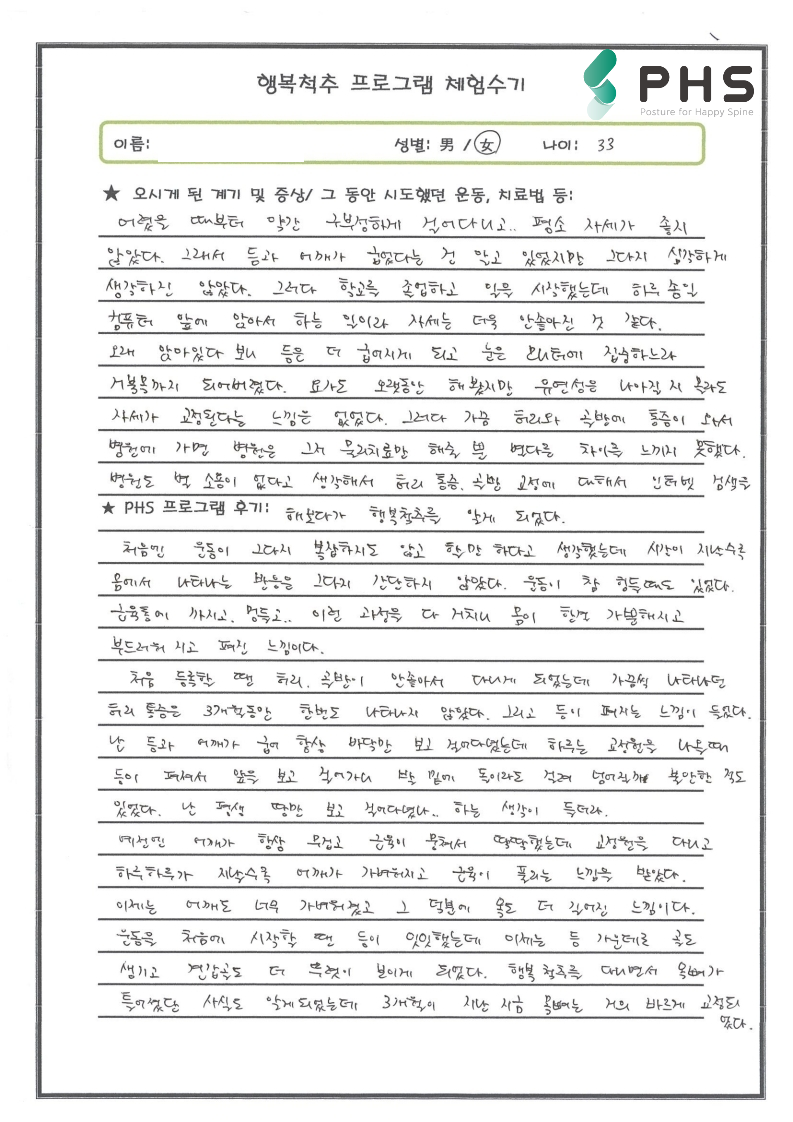 행복척추 프로그램 체험수기
PHS
Posture for Happy Spine
이름: 성별: 男 / 女 나이: 33
★ 오시게 된 계기 및 증상/ 그 동안 시도했던 운동, 치료법 등:
어렸을 때부터 약간 구부정하게 걸어다니고.. 평소 자세가 좋지
않았다. 그래서 등과 어깨가 굽었다는 건 알고 있었지만 그다지 심각하게
생각하진 않았다. 그러다 학교를 졸업하고 일을 시작했는데 하루종일
컴퓨터 앞에 앉아서 하는 일이라 자세는 더욱 안좋아진 것 같다.
오래 앉아있다 보니 등은 더 굽어지게 되고 눈은 모니터에 집중하느라
거북목까지 되어버렸다. 요가도 오랫동안 해봤지만 유연성은 나아질지 몰라도
자세가 교정된다는 느낌은 없었다. 그러다 가끔 허리와 골반에 통증이 와서
병원에 가면 병원은 그저 물리치료만 해줄 뿐 별다른 차이를 느끼지 못했다.
병원도 별 소용이 없다고 생각해서 허리 통증, 골반 교정에 대해서 인터넷 검색을
★ PHS 프로그램 후기: 해보다가 행복척추를 알게 되었다.
처음엔 운동이 그다지 복잡하지도 않고 할만 하다고 생각했는데 시간이 지날수록
몸에서 나타나는 반응은 그다지 간단하지 않았다. 운동이 참 힘들때도 있었다.
근육통에 까지고, 멍들고.. 이런 과정을 다 거치니 몸이 한결 가뿐해지고
부드러워 지고 펴진 느낌이다.
처음 등록할 땐 허리, 골반이 안좋아서 다니게 되었는데 가끔씩 나타나던
허리 통증은 3개월동안 한번도 나타나지 않았다. 그리고 등이 펴지는 느낌이 들었다.
난 등과 어깨가 굽어 항상 바닥만 보고 걸어다녔는데 하루는 교정원을 나올때
등이 펴져서 앞을 보고 걸어가니 발 밑에 돌이라도 걸려 넘어질까봐 불안한 적도
있었다. 난 평생 땅만 보고 걸어다녔나.. 하는 생각이 들더라.
예전엔 어깨가 항상 무겁고 근육이 뭉쳐서 딱딱했는데 교정원을 다니고
하루하루가 지날수록 어깨가 가벼워지고 근육이 풀리는 느낌을 받았다.
이제는 어깨도 너무 가벼워졌고 그 덕분에 목도 더 길어진 느낌이다.
운동을 처음에 시작할 땐 등이 밋밋했는데 이제는 등 가운데로 골도
생기고 견갑골도 더 뚜렷이 보이게 되었다. 행복척추를 다니면서 목뼈가
틀어졌단 사실도 알게되었는데 3개월이 지난 지금 목뼈는 거의 바르게 교정되
었다.